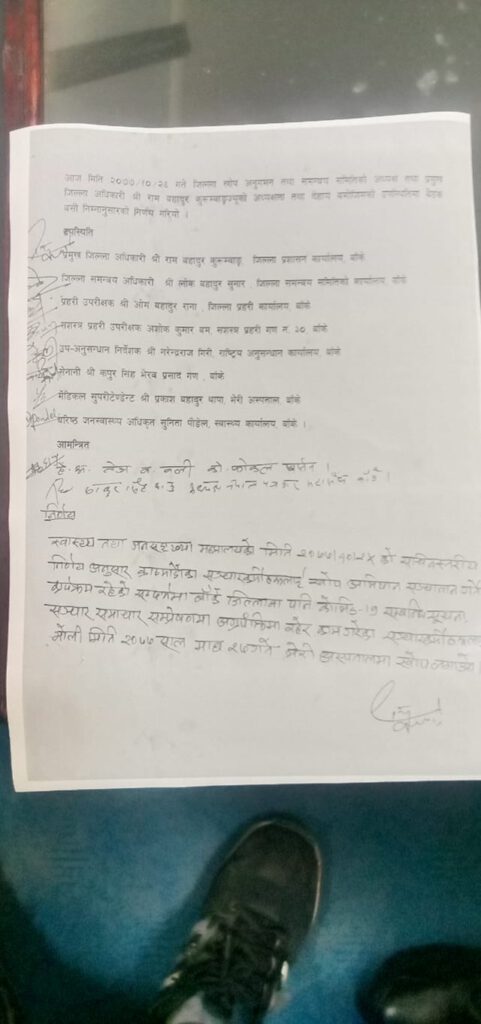 आज मिति २०७७/१०/२६ गते जिल्ला खोप अनुगमन तथा समन्वय समितिको अध्यक्ष तथा प्रमुख
जिल्ला अधिकारी श्री राम बहादुर कुरुम्बाङज्यूको अध्यक्षता तथा देहाय बमोजिमको उपस्थितिमा बैठक
बसी निम्नानुसारको निर्णय गरियो ।
उपस्थिति
प्रमुख जिल्ला अधिकारी श्री राम बहादुर कुरुम्बाङ, जिल्ला प्रशासन कार्यालय, बाँके
जिल्ला समन्वय अधिकारी श्री लोक बहादुर सुनार, जिल्ला समन्वय समितिको कार्यालय, बाँके
प्रहरी उपरीक्षक श्री ओम बहादुर राना, जिल्ला प्रहरी कार्यालय, बाँके
सशस्त्र प्रहरी उपरीक्षक अशोक कुमार बम, सशस्त्र प्रहरी गण नं. ३० बाँके
उप-अनुसन्धान निर्देशक श्री नरेन्द्रराज गिरी, राष्ट्रिय अनुसन्धान कार्यालय, बाँके
सेनानी श्री कपुर सिंह भैरव प्रसाद गण, बाँके
मेडिकल सुपरिटेण्डेण्ट श्री प्रकाश बहादुर थापा, भेरी अस्पताल बाँके
वरिष्ठ जनस्वास्थ्य अधिकृत सुनिता पौडेल, स्वास्थ्य कार्यालय, बाँके ।
आमन्त्रित
हे. अ. तेज व. वली को. फोकल पर्सन ।
ठाकुर सिंह
निर्णय
स्वास्थ्य तथा जनसङ्ख्या मन्त्रालयको मिति २०७७।१०।२५ को सचिवस्तरीय
निर्णय अनुसार सञ्चारकर्मीहरूलाई खोप अभियान सञ्चालन गर्ने
कार्यक्रम रहेको सम्बन्धमा बाँके जिल्लामा पनि कोभिड-१९ सम्बन्धि सूचना,
सञ्चार समाचार सम्प्रेषणमा अग्रपंक्तिमा रहेर काम गरेका
भोली मिति २०७७ साल माघ २७गते भेरी अस्पतालमा खोप लगाउने ।